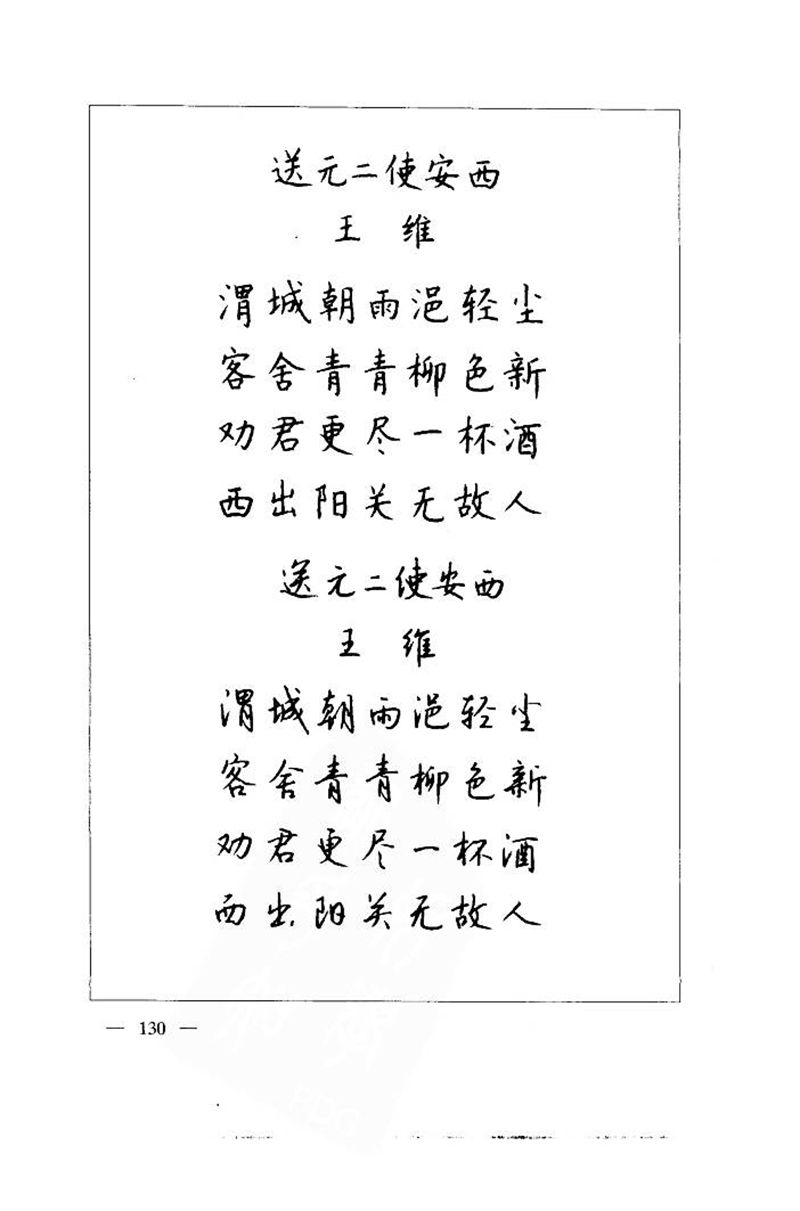 送元二使安西
王 维
渭城朝雨浥轻尘
客舍青青柳色新
劝君更尽一杯酒
西出阳关无故人
送元二使安西
王 维
渭城朝雨浥轻尘
客舍青青柳色新
劝君更尽一杯酒
西出阳关无故人
— 130 —